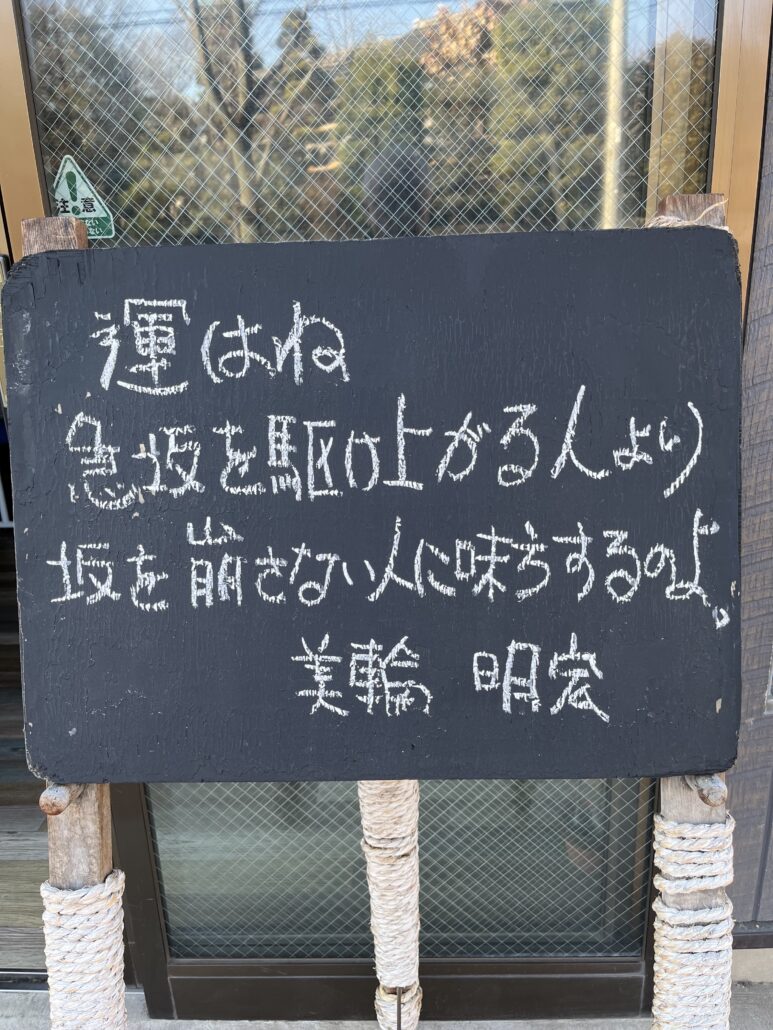 運はね
急坂を駆け上がる人より
坂を崩さない人に味方するのよ。
美輪 明宏
注 意